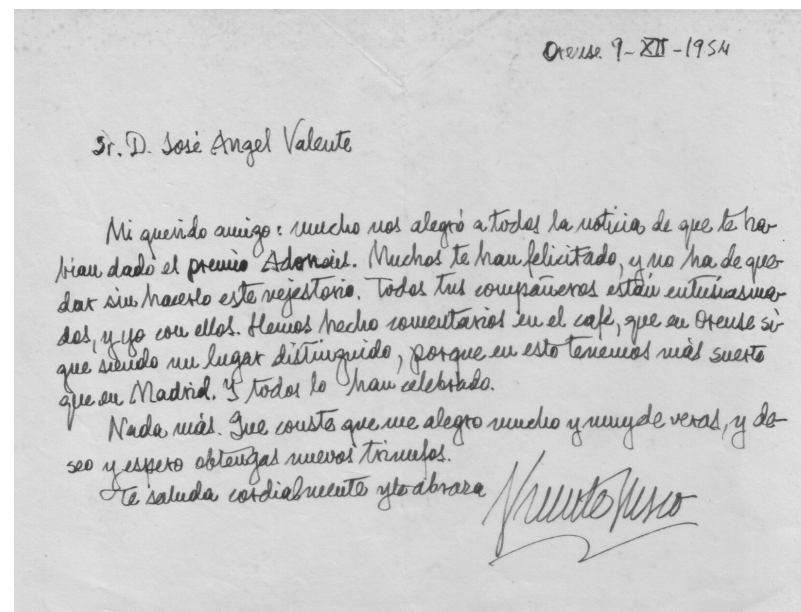 Orense 9-XII-1954
Sr. D. José Angel Valente
Mi querido amigo: mucho nos alegró a todos la noticia de que te ha-
bian dado el premio Adonais. Muchos te han felicitado, y no ha de que-
dar sin hacerlo este vejestorio. Todos tus compañeros están entusiasma-
dos, y yo con ellos. Hemos hecho comentarios en el café, que en Orense si-
gue siendo un lugar distinguido, porque en esto tenemos más suerte
que en Madrid. Y todos lo han celebrado.
Nada más. Que conste que me alegro mucho y muy de veras, y de-
seo y espero obtengas nuevos triunfos.
Te saluda cordialmente y te abraza
Vicente Risco